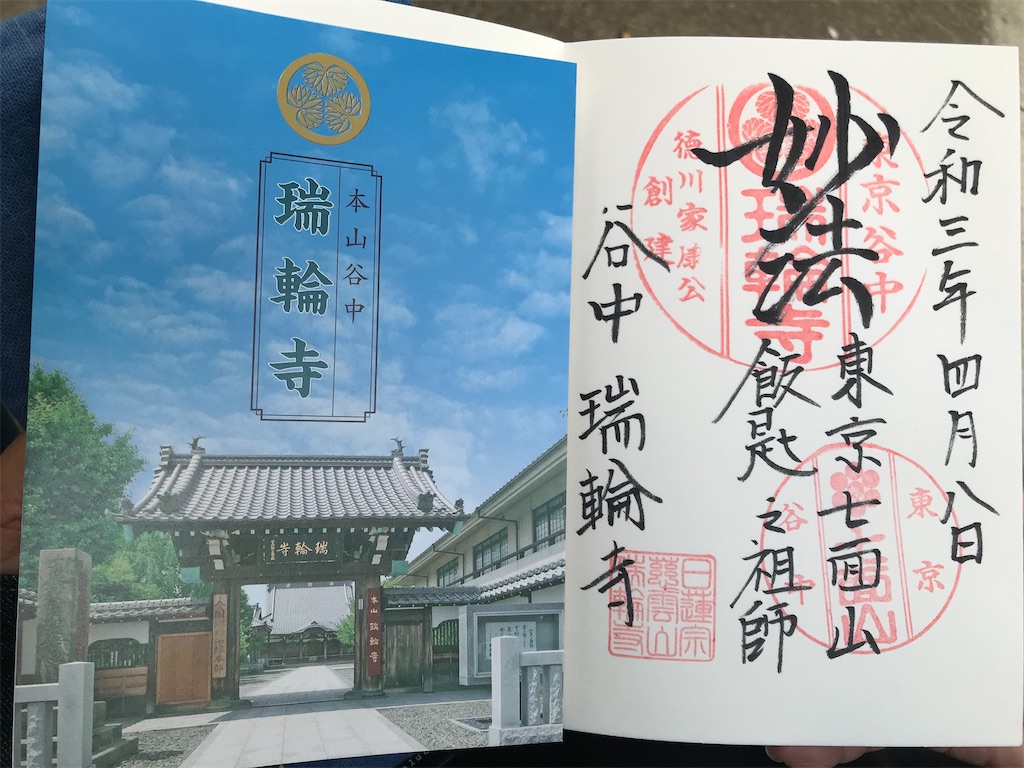 本山谷中
瑞輪寺
瑞輪寺
本山 瑞輪寺
令和三年四月八日
妙法
東京七面山
飯匙之祖師
谷中 瑞輪寺
東京谷中
瑞輪寺
徳川家康公
創建
東京
谷中
日蓮宗
慈雲山
瑞輪寺